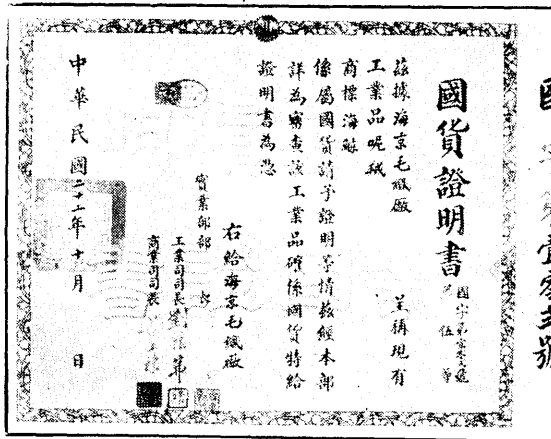 國貨證明書
國字第壹零弍號
伍等
茲據海京毛織廠 呈稱現有
工業品呢絨
商標海鯨
係屬國貨請予證明等情茲經本部
詳為審查該工業品確係國貨特給
證明書為憑
右給海京毛織廠
實業部部長
工業司司長劉蔭茀
商業司司長
中華民國二十二年十月 日
壹零弍號